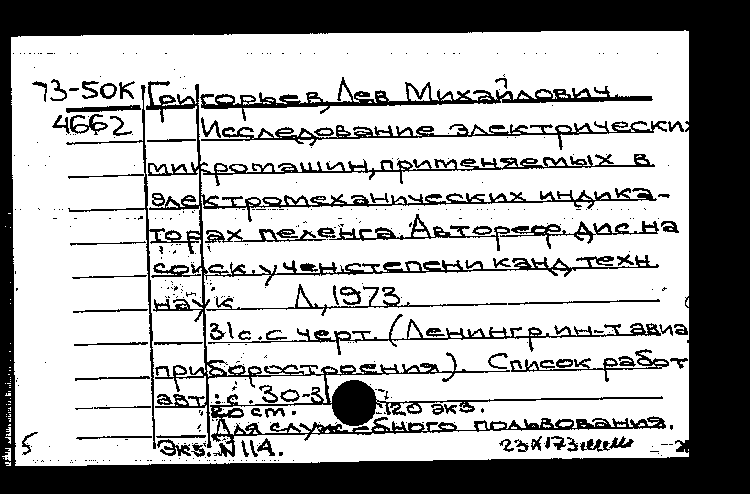 73-50К Григорьев, Лев Михайлович.
4662 Исследование электрических
микромашин, применяемых в
электромеханических индика-
торах пеленга. Автореф. дис. на
соиск. учен. степени канд. техн.
наук. Л., 1973.
31 с. с черт. (Ленингр. ин-т авиа
приборостроения). Список работ
авт.: с. 30-3
20 ст. 120 экз.
Для служебного пользования.
5 Экз. N 114. 23 X 173